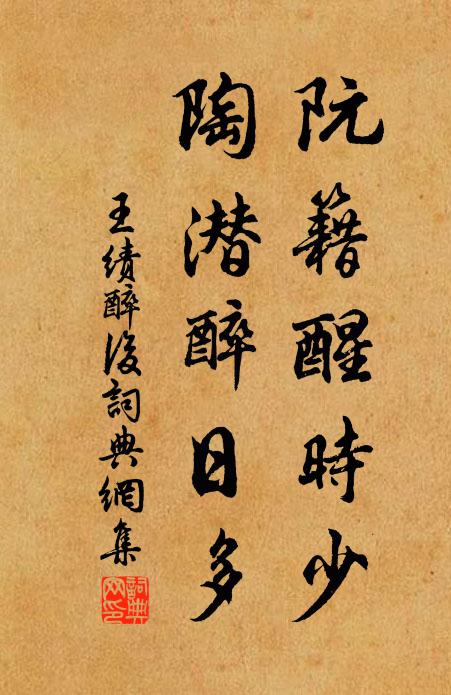 阮籍醒時少
陶潜醉日多
王績醉後詞典網集
詞典